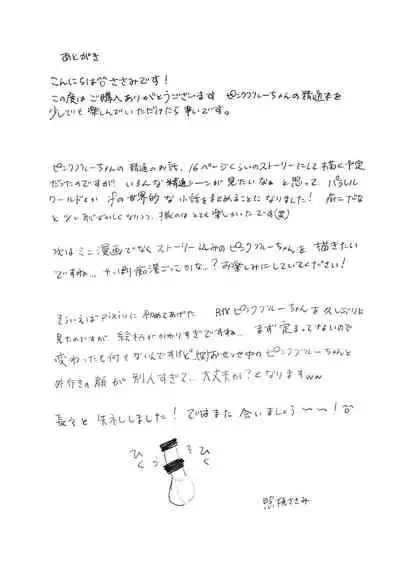 あとがき
こんにちは ささみです！
この度は ご購入ありがとうございます ピンクブルーちゃんの精通本を
少しでも楽しんでいただけたら幸いです。
ピンクブルーちゃんの精通のお話、16ページくらいのストーリーにして描く予定
だったのですが いろんな精通シーンが見たいなぁ と思って パラレル
ワールドというか ifの世界的な小話をまとめることになりました！
と 少し恥ずかしくなりつつ、描くのは とても楽しかったです(笑)
次は ミニ漫画でなく ストーリー込みの ピンクブルーちゃんを 描きたい
ですね… 痴漢ごっこかな…？お楽しみにしていてください！
そういえばpixivに 初めてあげた ピンクブルーちゃんを 久しぶりに
見たのですが 絵柄がかわりすぎですね… まず定まってないので
変わったも何もないんですけど ピンクブルーちゃんと
外行きの顔が 別人すぎて… 大丈夫か？となりますww
長々と 失礼しました！ ではまた 会いましょう〜〜！
ひく
ひく
ささみ